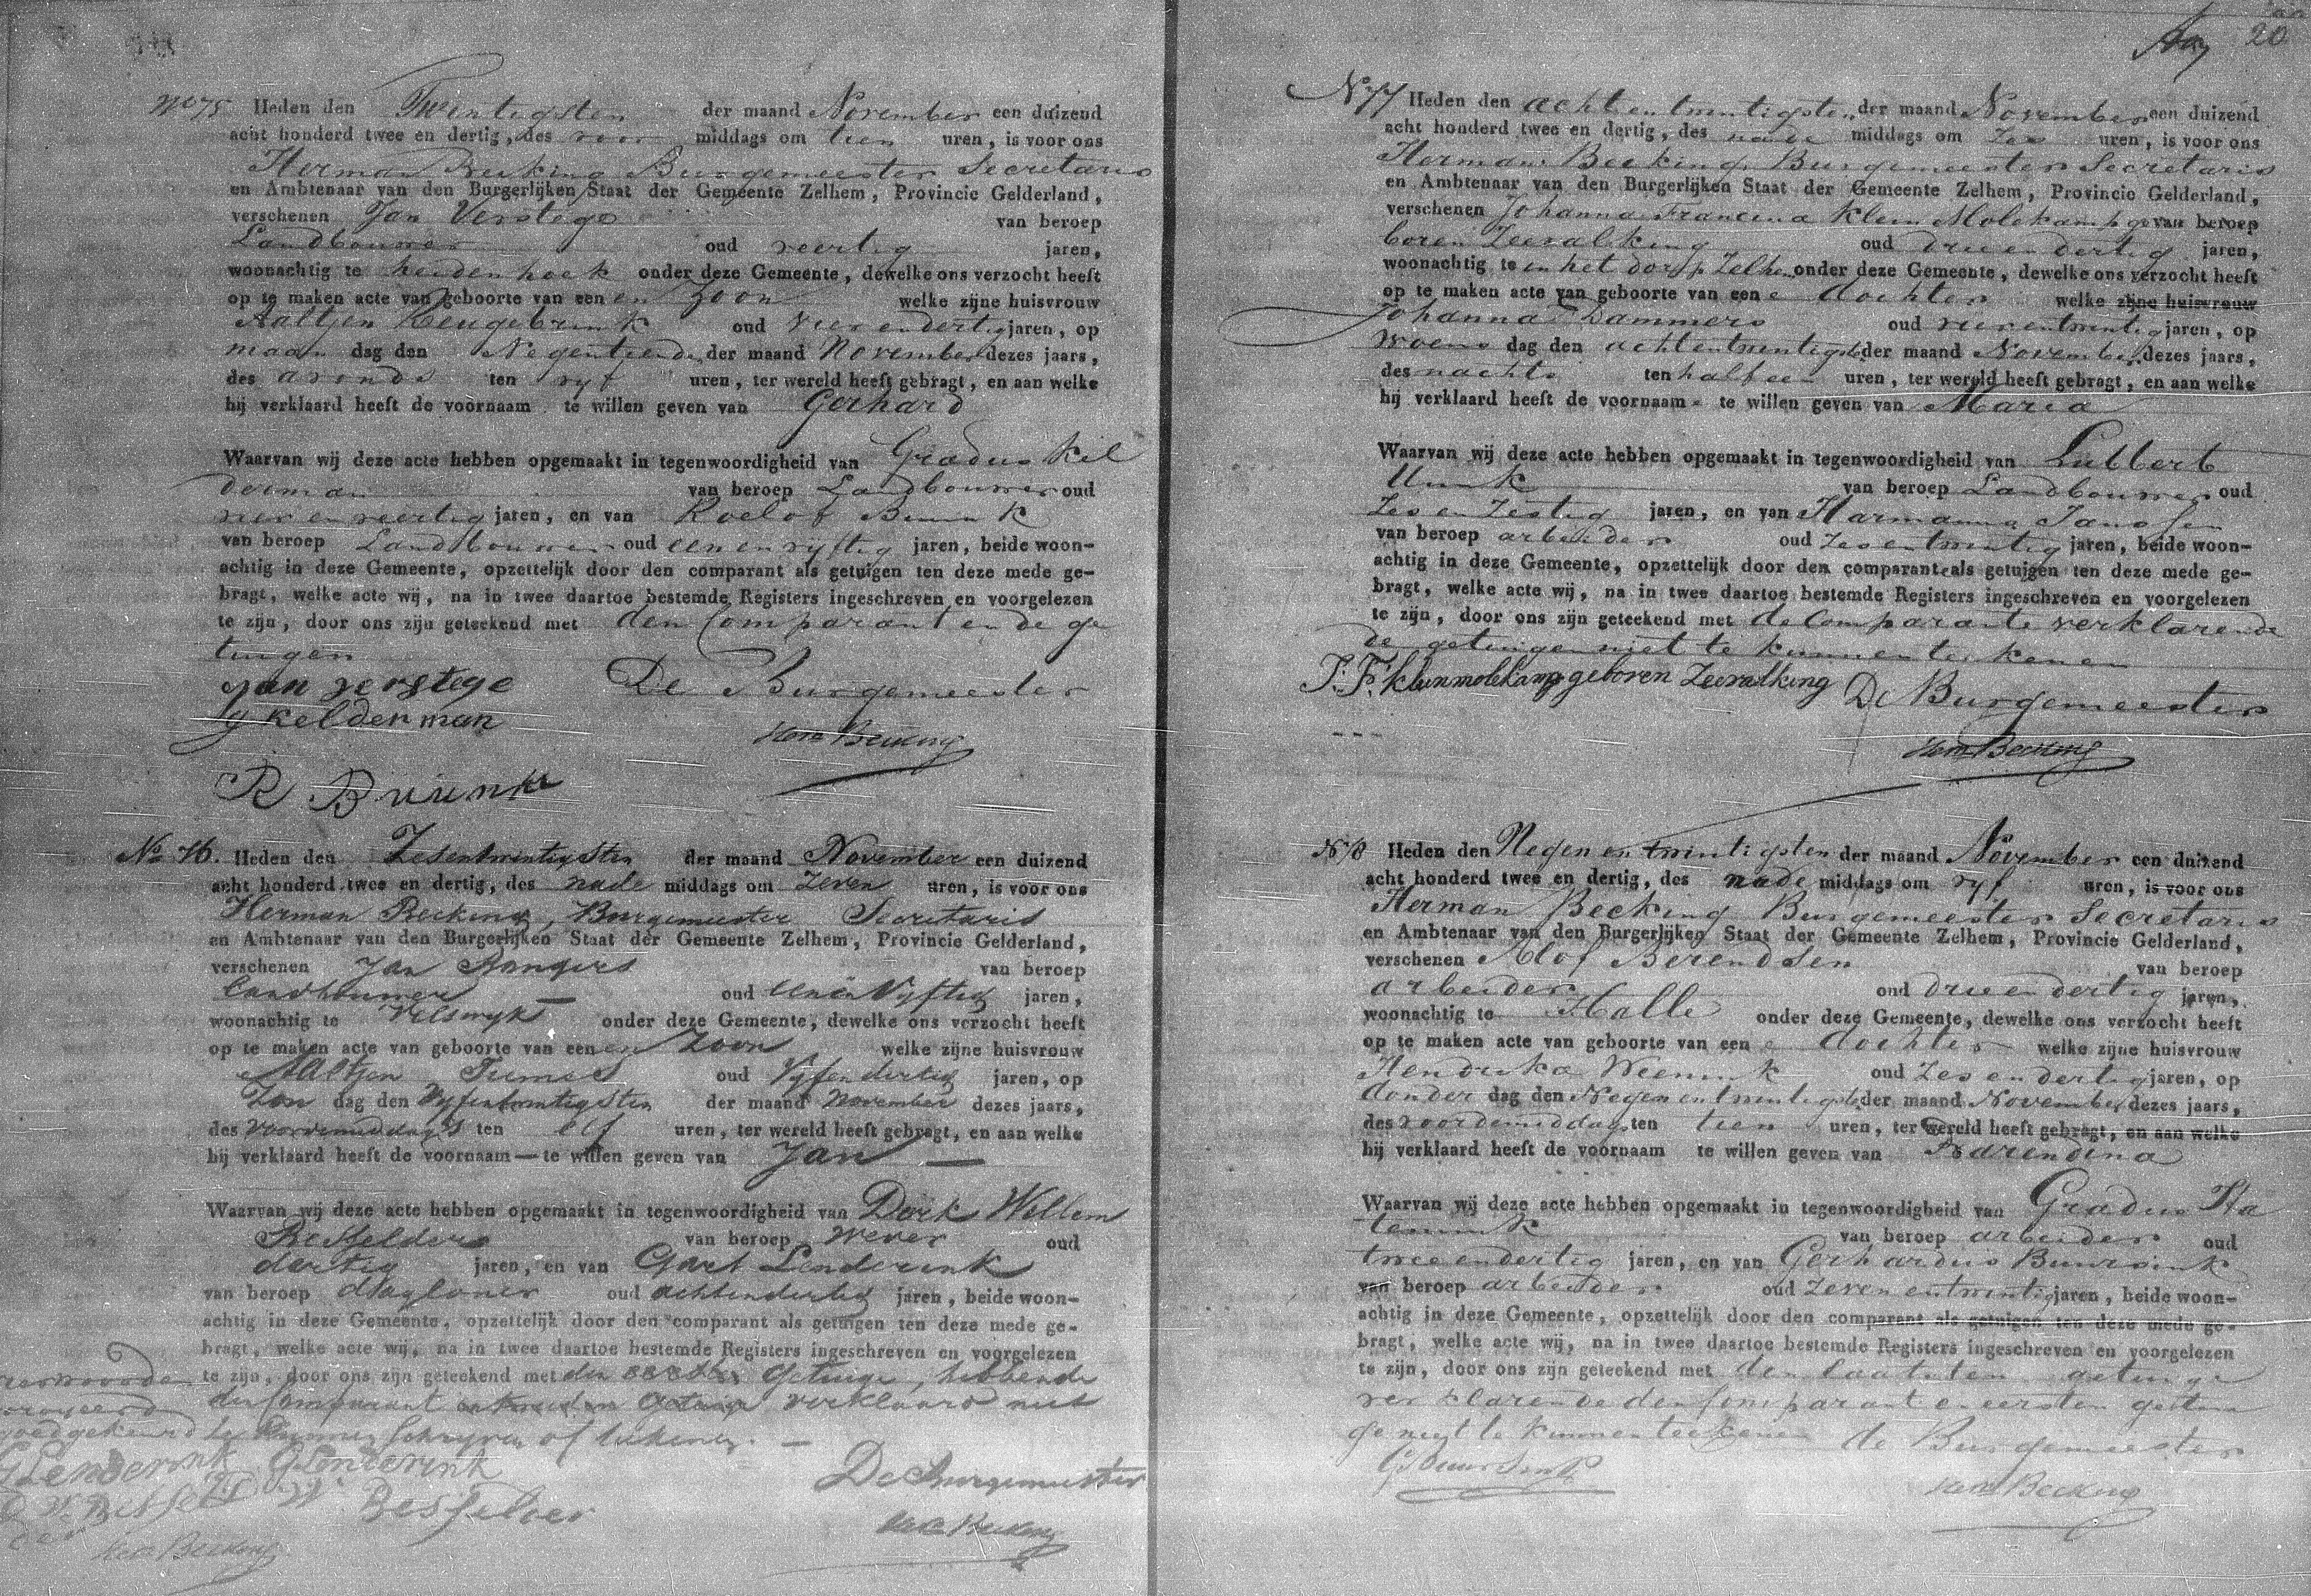 No 75 Heden den Twentigsten der maand November een duizend
acht honderd twee en dertig, des voor middags om tien uren, is voor ons
Herman Becking Burgemeester Secretaris
en Ambtenaar van den Burgerlijken Staat der Gemeente Zelhem, Provincie Gelderland,
verschenen Jan Verstege van beroep
Landbouwer oud veertig jaren,
woonachtig te heidenhoek onder deze Gemeente, dewelke ons verzocht heeft
op te maken acte van geboorte van een en Zoon welke zijne huisvrouw
Aaltjen Heugebrink oud vier en dertig jaren, op
maan dag den Negentiende der maand November dezes jaars,
des avonds ten vyf uren, ter wereld heeft gebragt, en aan welke
hij verklaard heeft de voornaam te willen geven van Gerhard
Waarvan wij deze acte hebben opgemaakt in tegenwoordigheid van Gradus Kil
derman van beroep Landbouwer oud
vier en veertig jaren, en van Roelof Buunk
van beroep Landbouwer oud een en vyftig jaren, beide woon-
achtig in deze Gemeente, opzettelijk door den comparant als getuigen ten deze mede ge-
bragt, welke acte wij, na in twee daartoe bestemde Registers ingeschreven en voorgelezen
te zijn, door ons zijn geteekend met den Comparant en de ge
tuigen
Jan verstege De Burgemeester
g kelderman Herm Becking
R Buunk
No 76. Heden den Zesentwintigsten der maand November een duizend
acht honderd twee en dertig, des nade middags om Zeven uren, is voor ons
Herman Becking, Burgemeester Secretaris
en Ambtenaar van den Burgerlijken Staat der Gemeente Zelhem, Provincie Gelderland,
verschenen Jan Rangers van beroep
Landbouwer oud eenenVyftig jaren,
woonachtig te Velswyk onder deze Gemeente, dewelke ons verzocht heeft
op te maken acte van geboorte van een en Zoon welke zijne huisvrouw
Aaltjen oud Vyfendertig jaren, op
Zon dag den Vyfentwintigsten der maand November dezes jaars,
des Voordemiddags ten elf uren, ter wereld heeft gebragt, en aan welke
hij verklaard heeft de voornaam — te willen geven van Jan —
Waarvan wij deze acte hebben opgemaakt in tegenwoordigheid van Derk Willem
Besselder van beroep Wever oud
dertig jaren, en van Gart Lenderink
van beroep dagloner oud achtendertig jaren, beide woon-
achtig in deze Gemeente, opzettelijk door den comparant als getuigen ten deze mede ge-
bragt, welke acte wij, na in twee daartoe bestemde Registers ingeschreven en voorgelezen
te zijn, door ons zijn geteekend met den Getuige, hebbende
den Comparant verklaard niet
goedgekeurd te kunnen schryven of tekenen. —
GLenderink GLenderink De Burgemeester
D W Bessel D W Besselder
der Herm Becking Herm Becking
20
No 77 Heden den achtentwintigsten der maand November een duizend
acht honderd twee en dertig, des nade middags om Zes uren, is voor ons
Herman Becking Burgemeester Secretaris
en Ambtenaar van den Burgerlijken Staat der Gemeente Zelhem, Provincie Gelderland,
verschenen Johanna Francina Klein Molekamp ge van beroep
boren Zeevalking oud drie en dertig jaren,
woonachtig te in het dorp Zelhem onder deze Gemeente, dewelke ons verzocht heeft
op te maken acte van geboorte van een e dochter welke zijne huisvrouw
Johanna Dammers oud vierentwintig jaren, op
Woens dag den achtentwintigste der maand November dezes jaars,
des nachts ten half een uren, ter wereld heeft gebragt, en aan welke
hij verklaard heeft de voornaam te willen geven van Maria
Waarvan wij deze acte hebben opgemaakt in tegenwoordigheid van Lubbert
Uunk van beroep Landbouwer oud
Zes en Zestig jaren, en van Harmanna Janssen
van beroep arbeider oud Zesentwintig jaren, beide woon-
achtig in deze Gemeente, opzettelijk door den comparant als getuigen ten deze mede ge-
bragt, welke acte wij, na in twee daartoe bestemde Registers ingeschreven en voorgelezen
te zijn, door ons zijn geteekend met de Comparante verklarende
de getuigen niet te kunnen tekenen
J. F. Kleinmolekamp geboren Zeevalking De Burgemeester
Herm Becking
No 78 Heden den Negen en twintigsten der maand November een duizend
acht honderd twee en dertig, des nade middags om vyf uren, is voor ons
Herman Becking Burgemeester Secretaris
en Ambtenaar van den Burgerlijken Staat der Gemeente Zelhem, Provincie Gelderland,
verschenen Alof Berendsen van beroep
arbeider oud drie en dertig jaren,
woonachtig te Halle onder deze Gemeente, dewelke ons verzocht heeft
op te maken acte van geboorte van een e dochter welke zijne huisvrouw
Hendrika Weenink oud Zes en dertig jaren, op
donder dag den Negenentwintigste der maand November dezes jaars,
des voordemiddags ten tien uren, ter wereld heeft gebragt, en aan welke
hij verklaard heeft de voornaam te willen geven van Barendina
Waarvan wij deze acte hebben opgemaakt in tegenwoordigheid van Gradus Ha
temink van beroep arbeider oud
twee en dertig jaren, en van Gerhardus Buursink
van beroep arbeider oud Zeven entwintig jaren, beide woon-
achtig in deze Gemeente, opzettelijk door den comparant als getuigen ten deze mede ge-
bragt, welke acte wij, na in twee daartoe bestemde Registers ingeschreven en voorgelezen
te zijn, door ons zijn geteekend met den laatsten getuige
verklarende den Comparant en eersten getui
ge niet te kunnen teekenen de Burgemeester
G Buursink Herm Becking